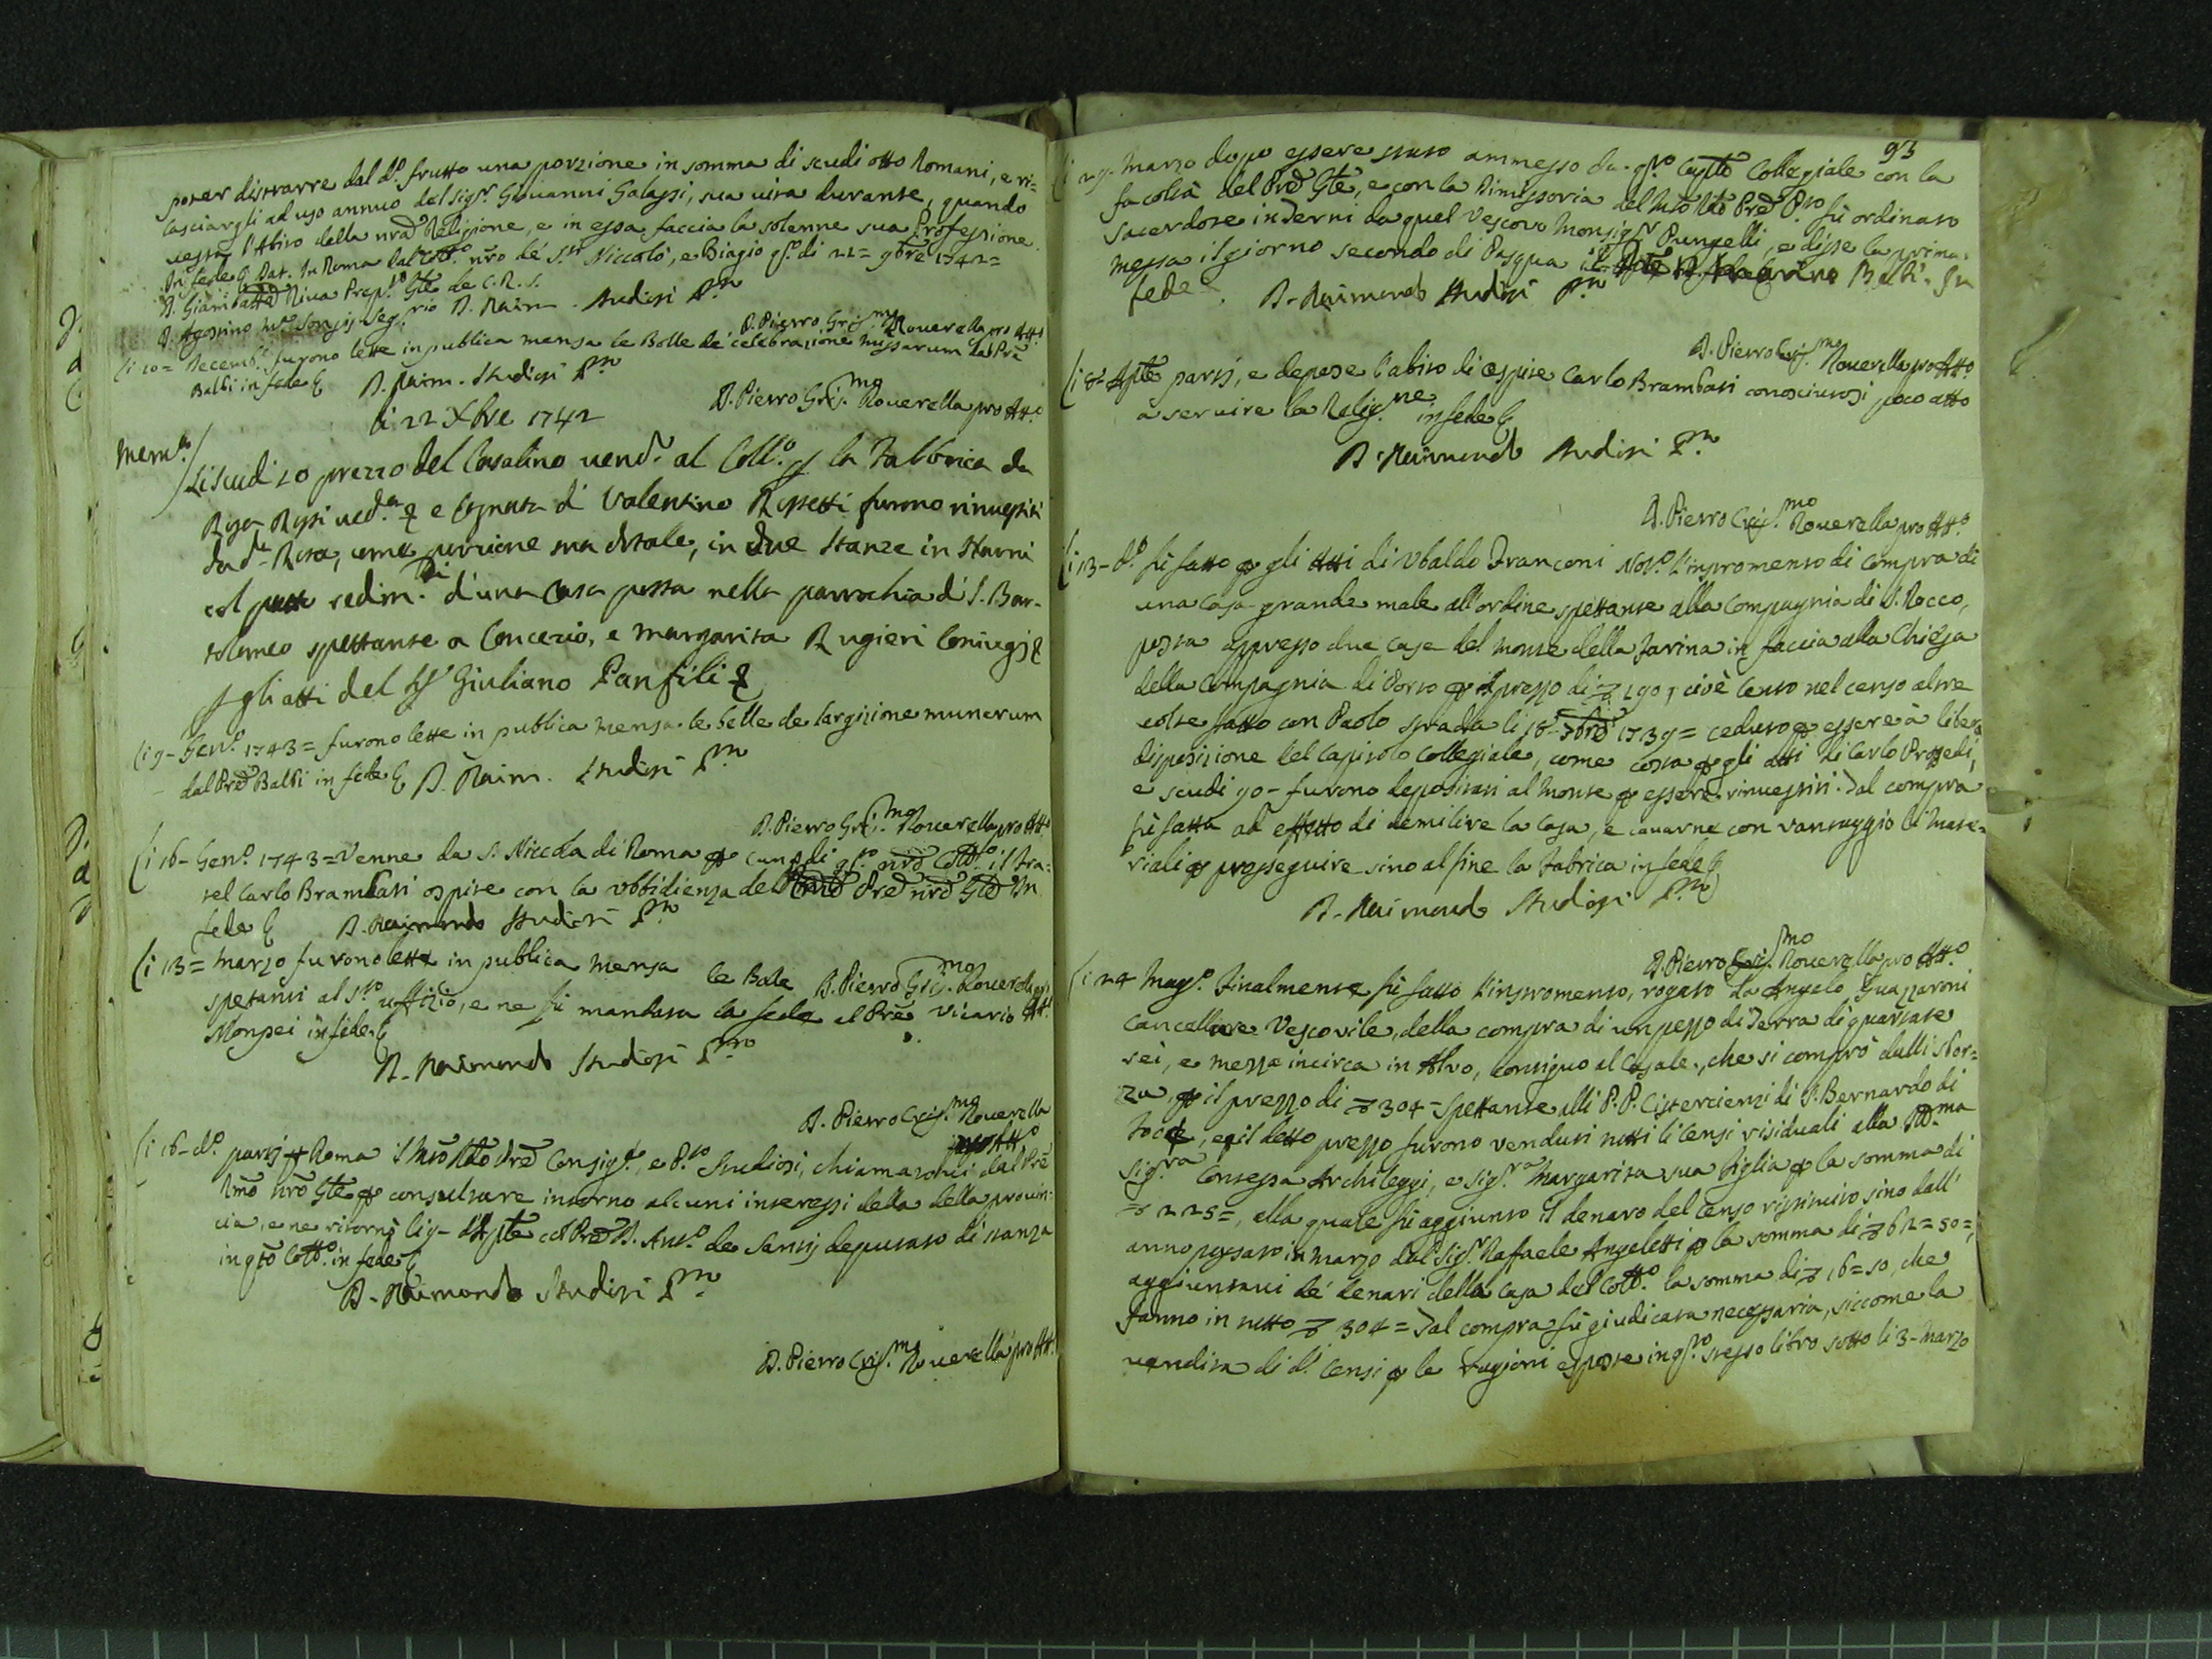 poter distrarre dal d.º frutto una porzione in somma di scudi otto Romani, e ri-
lasciargli ad uso annuo del Sig.r Giovanni Galassi, sua vita durante, quando
vesta l'Abito della nrã Religione, e in essa faccia la solenne sua Professione.
In fede &. Dat. In Roma dal Coll.º nr̃o de' S.ti Niccolò, e Biagio q.º di 22= 9bre 1742=
D. Giambattã Riva Prep.to Gñle de C. R. S.
D. Agostino M.ª Segr.rio D. Raim. Studiosi P.ro
D. Pietro Gris.mo Rovarella pro Att.º
Li 20= Decemb.e furono lette in publica mensa le Bolle de' celebratione missarum dal Prẽ
Balbi in fede & D. Raim. Studiosi P.ro
D. Pietro Gris.mo Rovarella pro Att.º
li 22 Xbre 1742
Mem.ª
Li scudi 20 prezzo del Casalino vend.º al Coll.º p la Fabbrica da
Rosa Rossi ved.ª e Cognata di Valentino Rossetti furono rinvestiti
da d.ª Rosa, come porzione sua dotale, in due stanze in
col patto redim.di d'una Casa posta nella parrochia di S. Bar-
tolomeo spettante a Concezio, e Margarita Rugieri Coniugi &
p gli atti del Sr Giuliano Panfili &
Li 9- Gen.º 1743= furono lette in publica mensa le bolle de largitione munerum
dal Prẽ Balbi in fede & D. Raim. Studiosi P.ro
D. Pietro Gris.mo Rovarella pro Att.º
Li 16- Gen.º 1743= Venne da S. Niccola di Roma p di q.to nrõ Coll.º il Fra-
tel Carlo Brambati ospite con la ubbidienza del Prẽ nrõ Gñle In
fede & D. Raimondo Studiosi P.ro
Li 13= Marzo furono lette in publica mensa le Bolle D. Pietro Gris.mo Rovarella pro Att.º
spetanti al S.to uffizio, e ne fù mandata la fede al Prẽ Vicario
Monpei in fede &
D. Raimondo Studiosi P.ro
D. Pietro Cris.mo Rovarella
pro Att.º
Li 16- d.º partì p Roma il Mtõ Rdõ Prẽ Consig.e, e P.to Studiosi, chiamatovi dal Prẽ
Rmõ nrõ Gñle p consultare intorno alcuni interessi della della provin-
cia, e ne ritornò li 9- d'Aple col Prẽ D. Ant.º de Santis deputato di stanza
in qtõ Coll.º in fede &
D. Raimondo Studiosi P.ro
D. Pietro Cris.mo Rovarella pro Att.º
93
Li 29- Marzo dopo essere stato ammesso da q.to Capitõ Collegiale con la
facoltà del Prẽ Gñle, e con la Dimissoria del Mtõ Rdõ Prẽ P.to fù ordinato
sacerdote in Terni da quel Vescovo Monsig.r Pungelli, e disse la prima
messa il giorno secondo di Pasqua Balbi. In
fede &. D. Raimondo Studiosi P.ro
D. Pietro Cris.mo Rovarella pro Att.º
Li 8- Aple partì, e depose l'abito di ospite Carlo Brambati conosciutosi poco atto
à servire la Relig.ne in fede &
D. Raimondo Studiosi P.ro
D. Pietro Cris.mo Rovarella pro Att.º
Li 13- d.º fù fatto p gli Atti di Ubaldo Franconi Not.º l'instromento di compra di
una casa grande male all'ordine spettante alla Compagnia di S. Rocco,
posta appresso due case del Monte della Farina in faccia alla Chiesa
della Compagnia di p il prezzo di 190, cioè cento nel censo altre
volte fatto con Paolo Strada li 18- 7bre 1739= ceduto p essere à libera
disposizione del Capitolo Collegiale, come costa p gli atti di Carlo Prosedi,
e scudi 90- furono depositati al Monte p essere rinvestiti. Tal compra
fù fatta ad effetto di demilire la casa, e cavarne con vantaggio li mate-
riali p prosseguire sino al fine la fabrica in fede &
D. Raimondo Studiosi P.ro
D. Pietro Cris.mo Rovarella pro Att.º
Li 24 Mag.º Finalmente fù fatto l'instromento, rogato da Angelo Guazzaroni
Cancelliere Vescovile, della compra di un pezzo di Terra di quartate
sei, e mezza incirca in Alvo, contiguo al Casale, che si comprò dalli Sfor-
za, p il prezzo di 304- spettante alli P.P. Cisterciensi di S. Bernardo di
, e p il detto prezzo furono venduti tutti li censi residuali alla
Sig.ra Contessa Archileggi, e Sig.ra Margarita sua figlia p la somma di
225=, alla quale fù aggiunto il denaro del censo ristituito sino dall'
anno passato in Marzo dal Sig.r Rafaele Angeletti p la somma di 62=50=,
aggiuntavi de' denari della Casa del Coll.º la somma di 16=50, che
fanno in tutto 304= Tal compra fù giudicata necessaria, siccome la
vendita di d.i Censi p le ragioni esposte in q.to stesso libro sotto li 3- Marzo